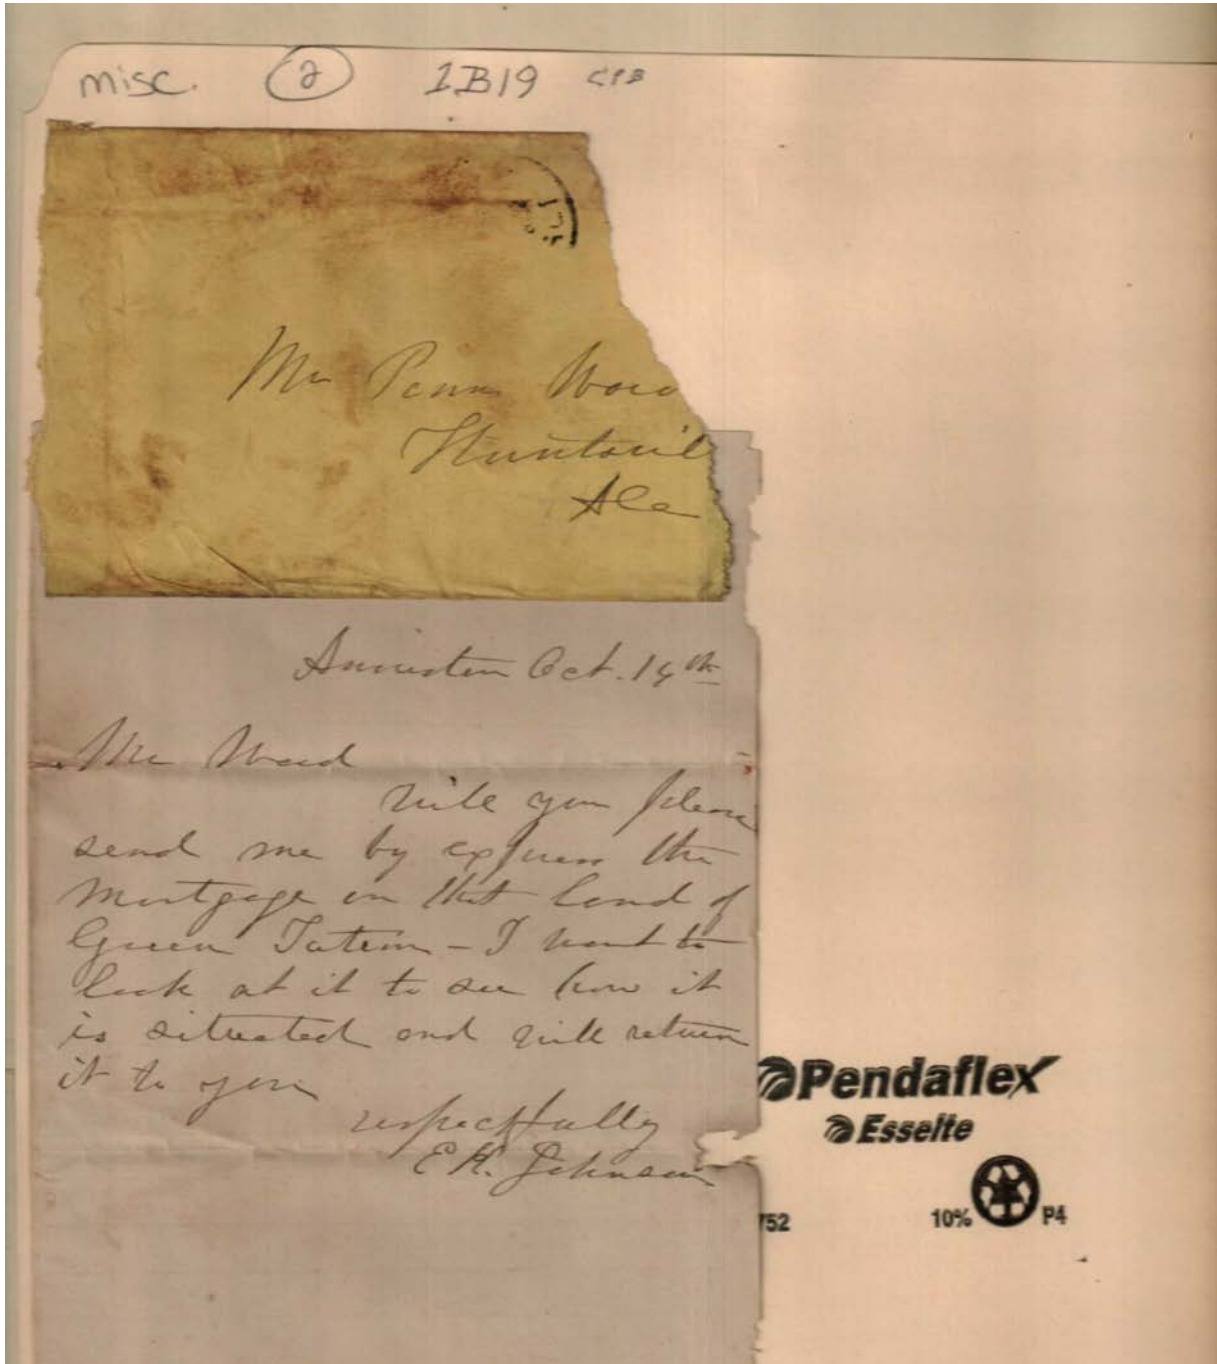 misc. 2 1B19 CPB
Mr Penn Ward
Huntsvil
Ala
Anniston Oct. 14th
Mr Ward
Will you please
send me by express the
Mortgage on that land of
Green Tatum - I want to
look at it to see how it
is situated and will return
it to you
respectfully
E H. Johnson
Pendaflex
Esselte
752
10% P4